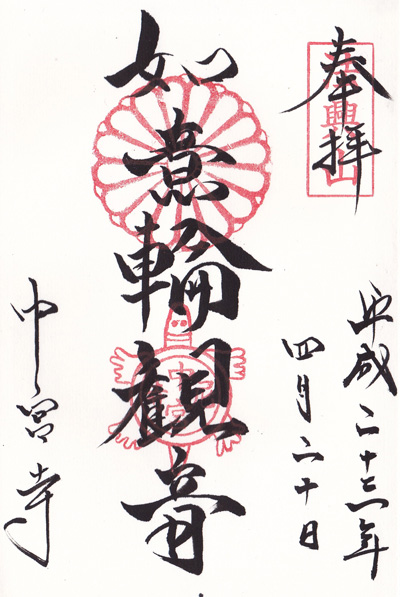 奉拝
平成二十三年
四月二十日
如意輪観音
中宮寺